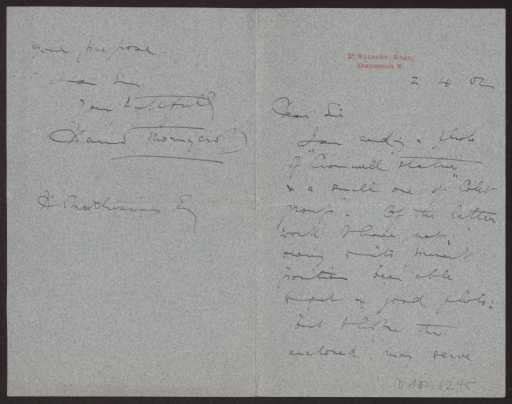 2 4 02
Dear Sir
I am sending a photo
of "Cromwell statue"
& a small one of "Colet
group". Of the latter
work I have not,
owing to its present
position been able
to get a good photo:
but I hope the
enclosed may serve
your purpose.
Dear Sir
Yours faithfully
Hamo Thornycroft
Esq